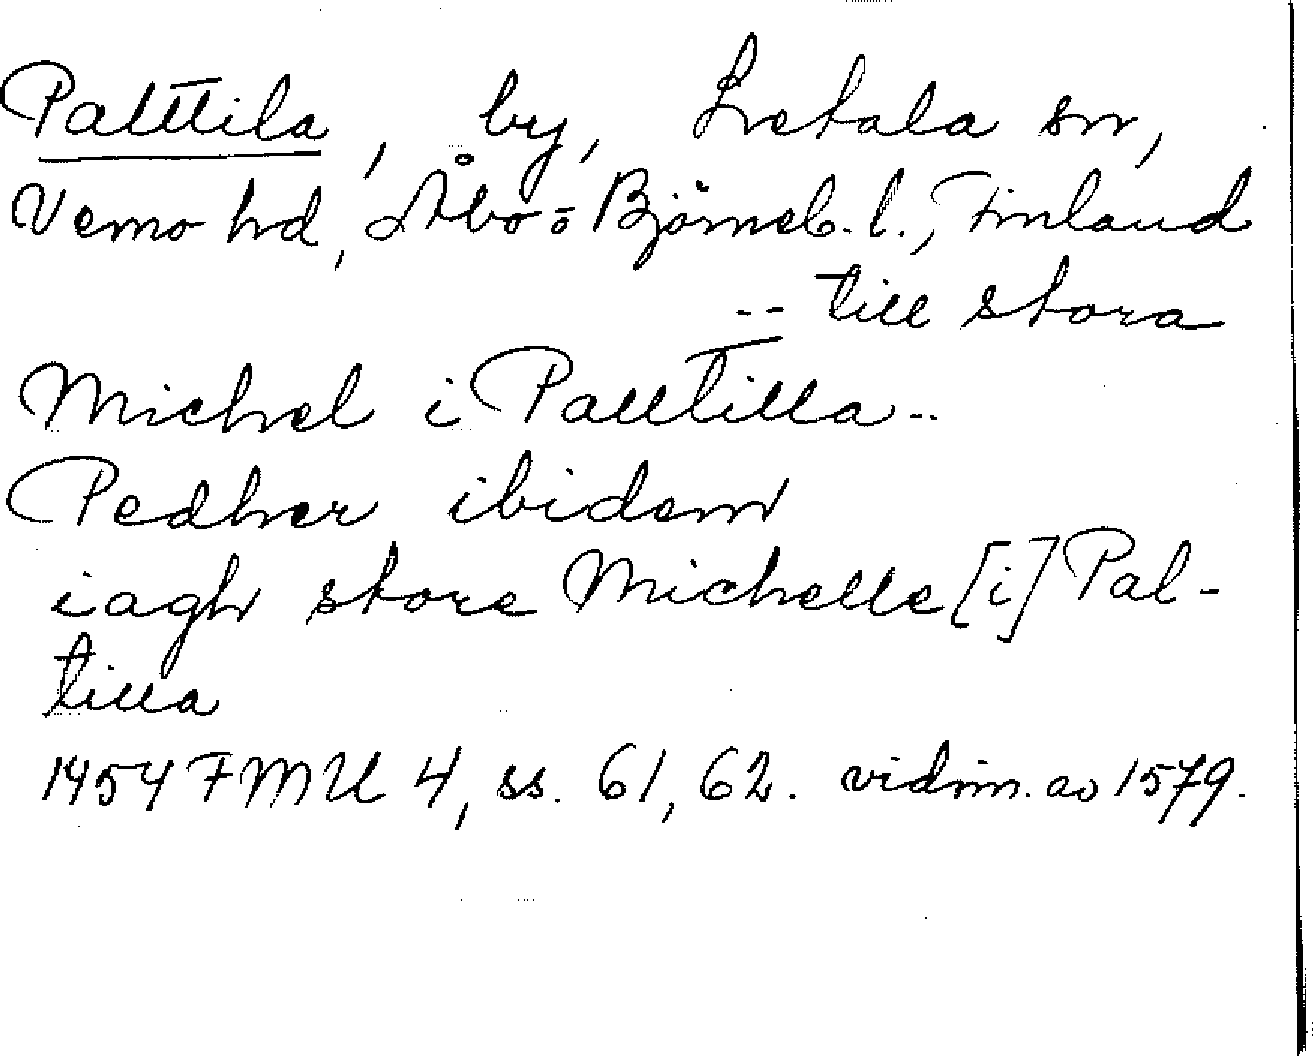 Palttila, by, Letala sn,
Vemo hd, Åbo-o Björneb. l., Finland
-- till stora
Michel i Palltilla--
Pedher ibidem
iagh store Michelle [i] Pal-
tilla
1454 FMU 4, ss. 61, 62. vidim. av 1579.